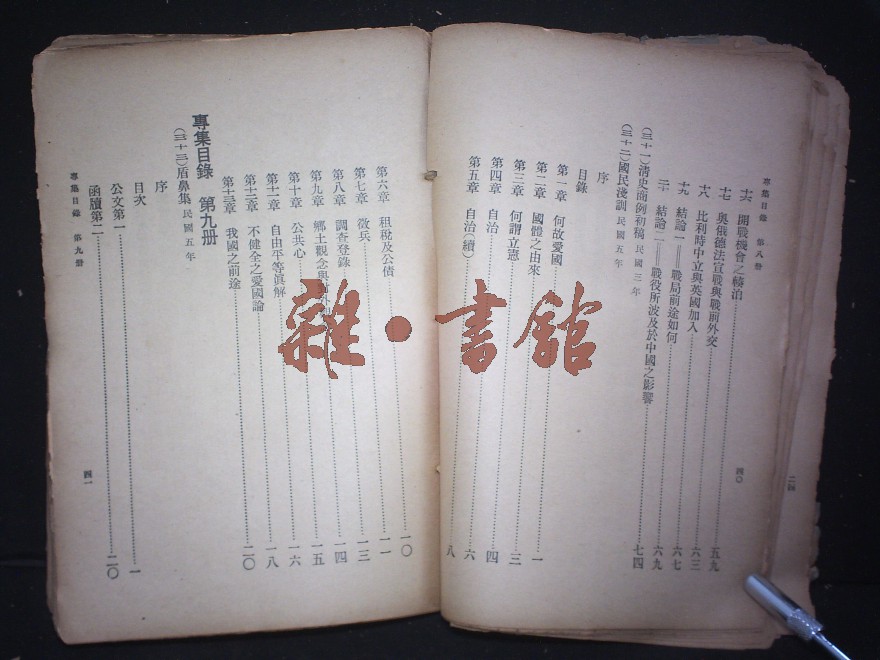 專集目錄 第八册
十六 開戰機會之
十七 奧俄德法宣戰與戰前外交 五九
十八 比利時中立與英國加入 六三
十九 結論一——戰局前途如何 六七
二十 結論二——戰役所波及於中國之影響 六九
(三十一)清史商例初稿 民國三年 七四
(三十二)國民淺訓 民國五年
序
目錄
第一章 何故愛國 一
第二章 國體之由來
第三章 何謂立憲 三
第四章 自治 四
第五章 自治(續) 六
八
四〇
二四
第六章 租稅及公債 一〇
第七章 徵兵 一一
第八章 調查登錄 一三
第九章 鄉土觀念與 一四
第十章 公共心 一五
第十一章 自由平等眞解 一六
第十二章 不健全之愛國論 一八
第十三章 我國之前途 二〇
專集目錄 第九册
(三十三)盾鼻集 民國五年
序
目次
公文第一 一
函牘第二 二〇
專集目錄 第九册
四一
雜·書館